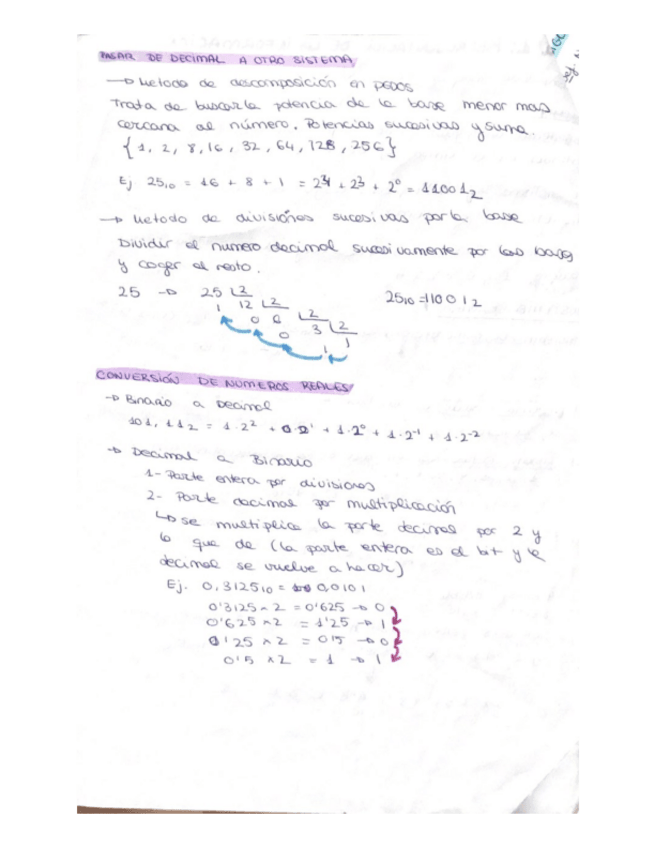 PASAR DE DECIMAL A OTRO SISTEMA
→ Metodo de descomposición en pesos
Trata de buscar la potencia de la base menor mas
cercana al número. Potencias sucesivas y suma.
{1, 2, 8, 16, 32, 64, 128, 256}
Ej 25₁₀ = 16 + 8 + 1 = 2⁴ + 2³ + 2⁰ = 11001₂
→ Metodo de divisiones sucesivas por la base
Dividir el numero decimal sucesivamente por las bases
y coger el resto.
25 → 25 |2
1 12 |2
0 6 |2
0 3 |2
1 1
25₁₀ = 11001₂
CONVERSIÓN DE NUMEROS REALES
→ Binario a Decimal
101,11₂ = 1·2² + 0·2¹ + 1·2⁰ + 1·2⁻¹ + 1·2⁻²
→ Decimal a Binario
1- Parte entera por divisiones
2- Parte decimal por multiplicación
↳ se multiplica la parte decimal por 2 y
lo que de (la parte entera es el bit y la
decimal se vuelve a hacer)
Ej. 0,312510 = 0,0101
0'3125 × 2 = 0'625 → 0
0'625 × 2 = 1'25 → 1
0'25 × 2 = 0'5 → 0
0'5 × 2 = 1 → 1